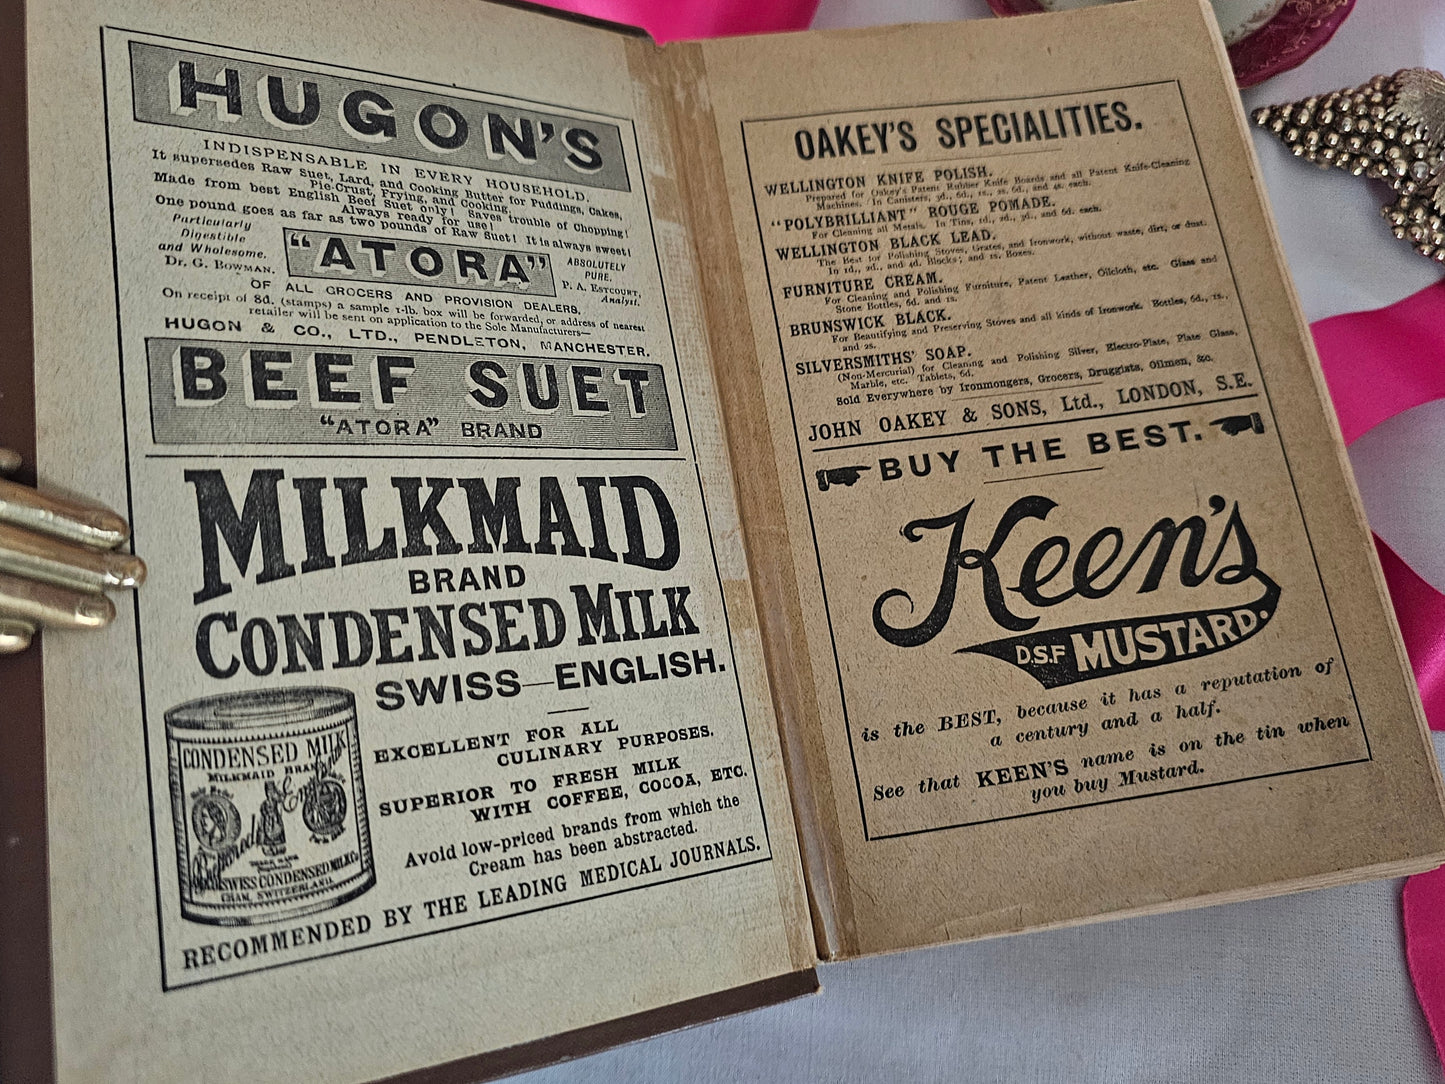 HUGON'S
INDISPENSABLE IN EVERY HOUSEHOLD.
It supersedes Raw Suet, Lard, and Cooking Butter for Puddings, Cakes,
Pie-Crust, Frying, and Cooking.
Made from best English Beef Suet only! Saves trouble of Chopping!
Always ready for use!
One pound goes as far as two pounds of Raw Suet! It is always sweet!
Particularly
Digestible
and Wholesome.
Dr. G. BOWMAN.
"ATORA"
ABSOLUTELY
PURE.
P. A. ESTCOURT,
Analyst.
OF ALL GROCERS AND PROVISION DEALERS.
On receipt of 8d. (stamps) a sample 1-lb. box will be forwarded, or address of nearest
retailer will be sent on application to the Sole Manufacturers—
HUGON & CO., LTD., PENDLETON, MANCHESTER.
BEEF SUET
"ATORA" BRAND
MILKMAID
BRAND
CONDENSED MILK
SWISS—ENGLISH.
CONDENSED MILK
MILKMAID BRAND
SWISS CONDENSED MILK Co
CHAM, SWITZERLAND.
EXCELLENT FOR ALL
CULINARY PURPOSES.
SUPERIOR TO FRESH MILK
WITH COFFEE, COCOA, ETC.
Avoid low-priced brands from which the
Cream has been abstracted.
RECOMMENDED BY THE LEADING MEDICAL JOURNALS.
OAKEY'S SPECIALITIES.
WELLINGTON KNIFE POLISH.
Prepared for Oakey's Patent Rubber Knife Boards and all Patent Knife-Cleaning
Machines. In Canisters, 3d., 6d., 1s., 2s. 6d., and 4s. each.
"POLYBRILLIANT" ROUGE POMADE.
For Cleaning all Metals. In Tins, 1d., 2d., 3d., and 6d. each.
WELLINGTON BLACK LEAD.
The Best for Polishing Stoves, Grates, and Ironwork, without waste, dirt, or dust.
In 1d., 2d., and 4d. Blocks; and 1s. Boxes.
FURNITURE CREAM.
For Cleaning and Polishing Furniture, Patent Leather, Oilcloth, etc. Glass and
Stone Bottles, 6d. and 1s.
BRUNSWICK BLACK.
For Beautifying and Preserving Stoves and all kinds of Ironwork. Bottles, 6d., 1s.,
and 2s.
SILVERSMITHS' SOAP.
(Non-Mercurial) for Cleaning and Polishing Silver, Electro-Plate, Plate Glass,
Marble, etc. Tablets, 6d.
Sold Everywhere by Ironmongers, Grocers, Druggists, Oilmen, &c.
JOHN OAKEY & SONS, Ltd., LONDON, S.E.
BUY THE BEST.
Keen's
D.S.F MUSTARD.
is the BEST, because it has a reputation of
a century and a half.
See that KEEN'S name is on the tin when
you buy Mustard.